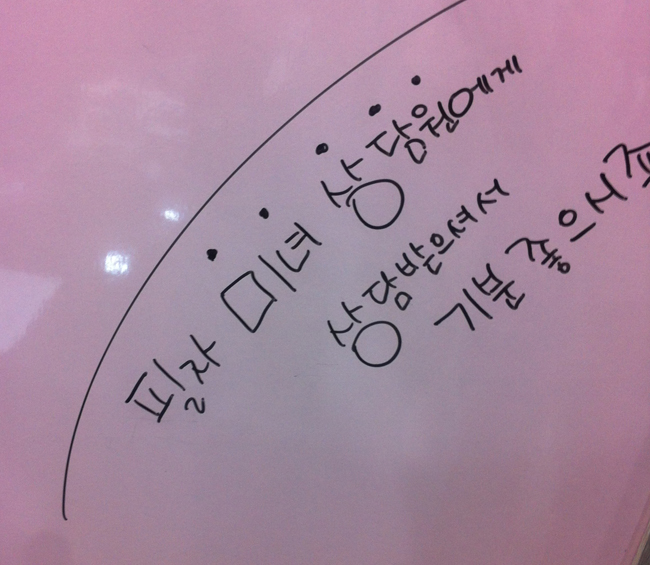 필자 미녀 상담원에게
상담받으셔서
기분 좋으시죠